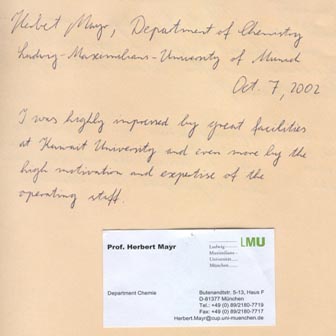 Herbert Mayr, Department of Chemistry
Ludwig-Maximilians-University of Munich
Oct. 7, 2002
I was highly impressed by great facilities
at Kuwait University and even more by the
high motivation and expertise of the
operating staff.
Prof. Herbert Mayr
Ludwig
Maximilians
Universität
München
LMU
Department Chemie
Butenandtstr. 5-13, Haus F
D-81377 München
Tel.: +49 (0) 89/2180-7719
Fax: +49 (0) 89/2180-7717
Herbert.Mayr@cup.uni-muenchen.de